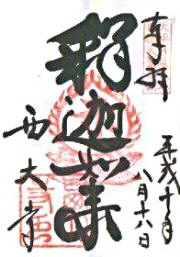 奉拝
平成十年
八月十八日
釋迦如来
西大寺